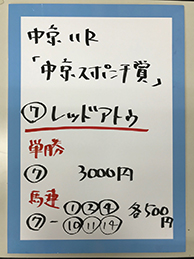 中京11R
「中京スポニチ賞」
⑦ レッドアトゥ
単勝
⑦ 3000円
馬連
⑦-①②④ 各500円
⑩⑪⑭